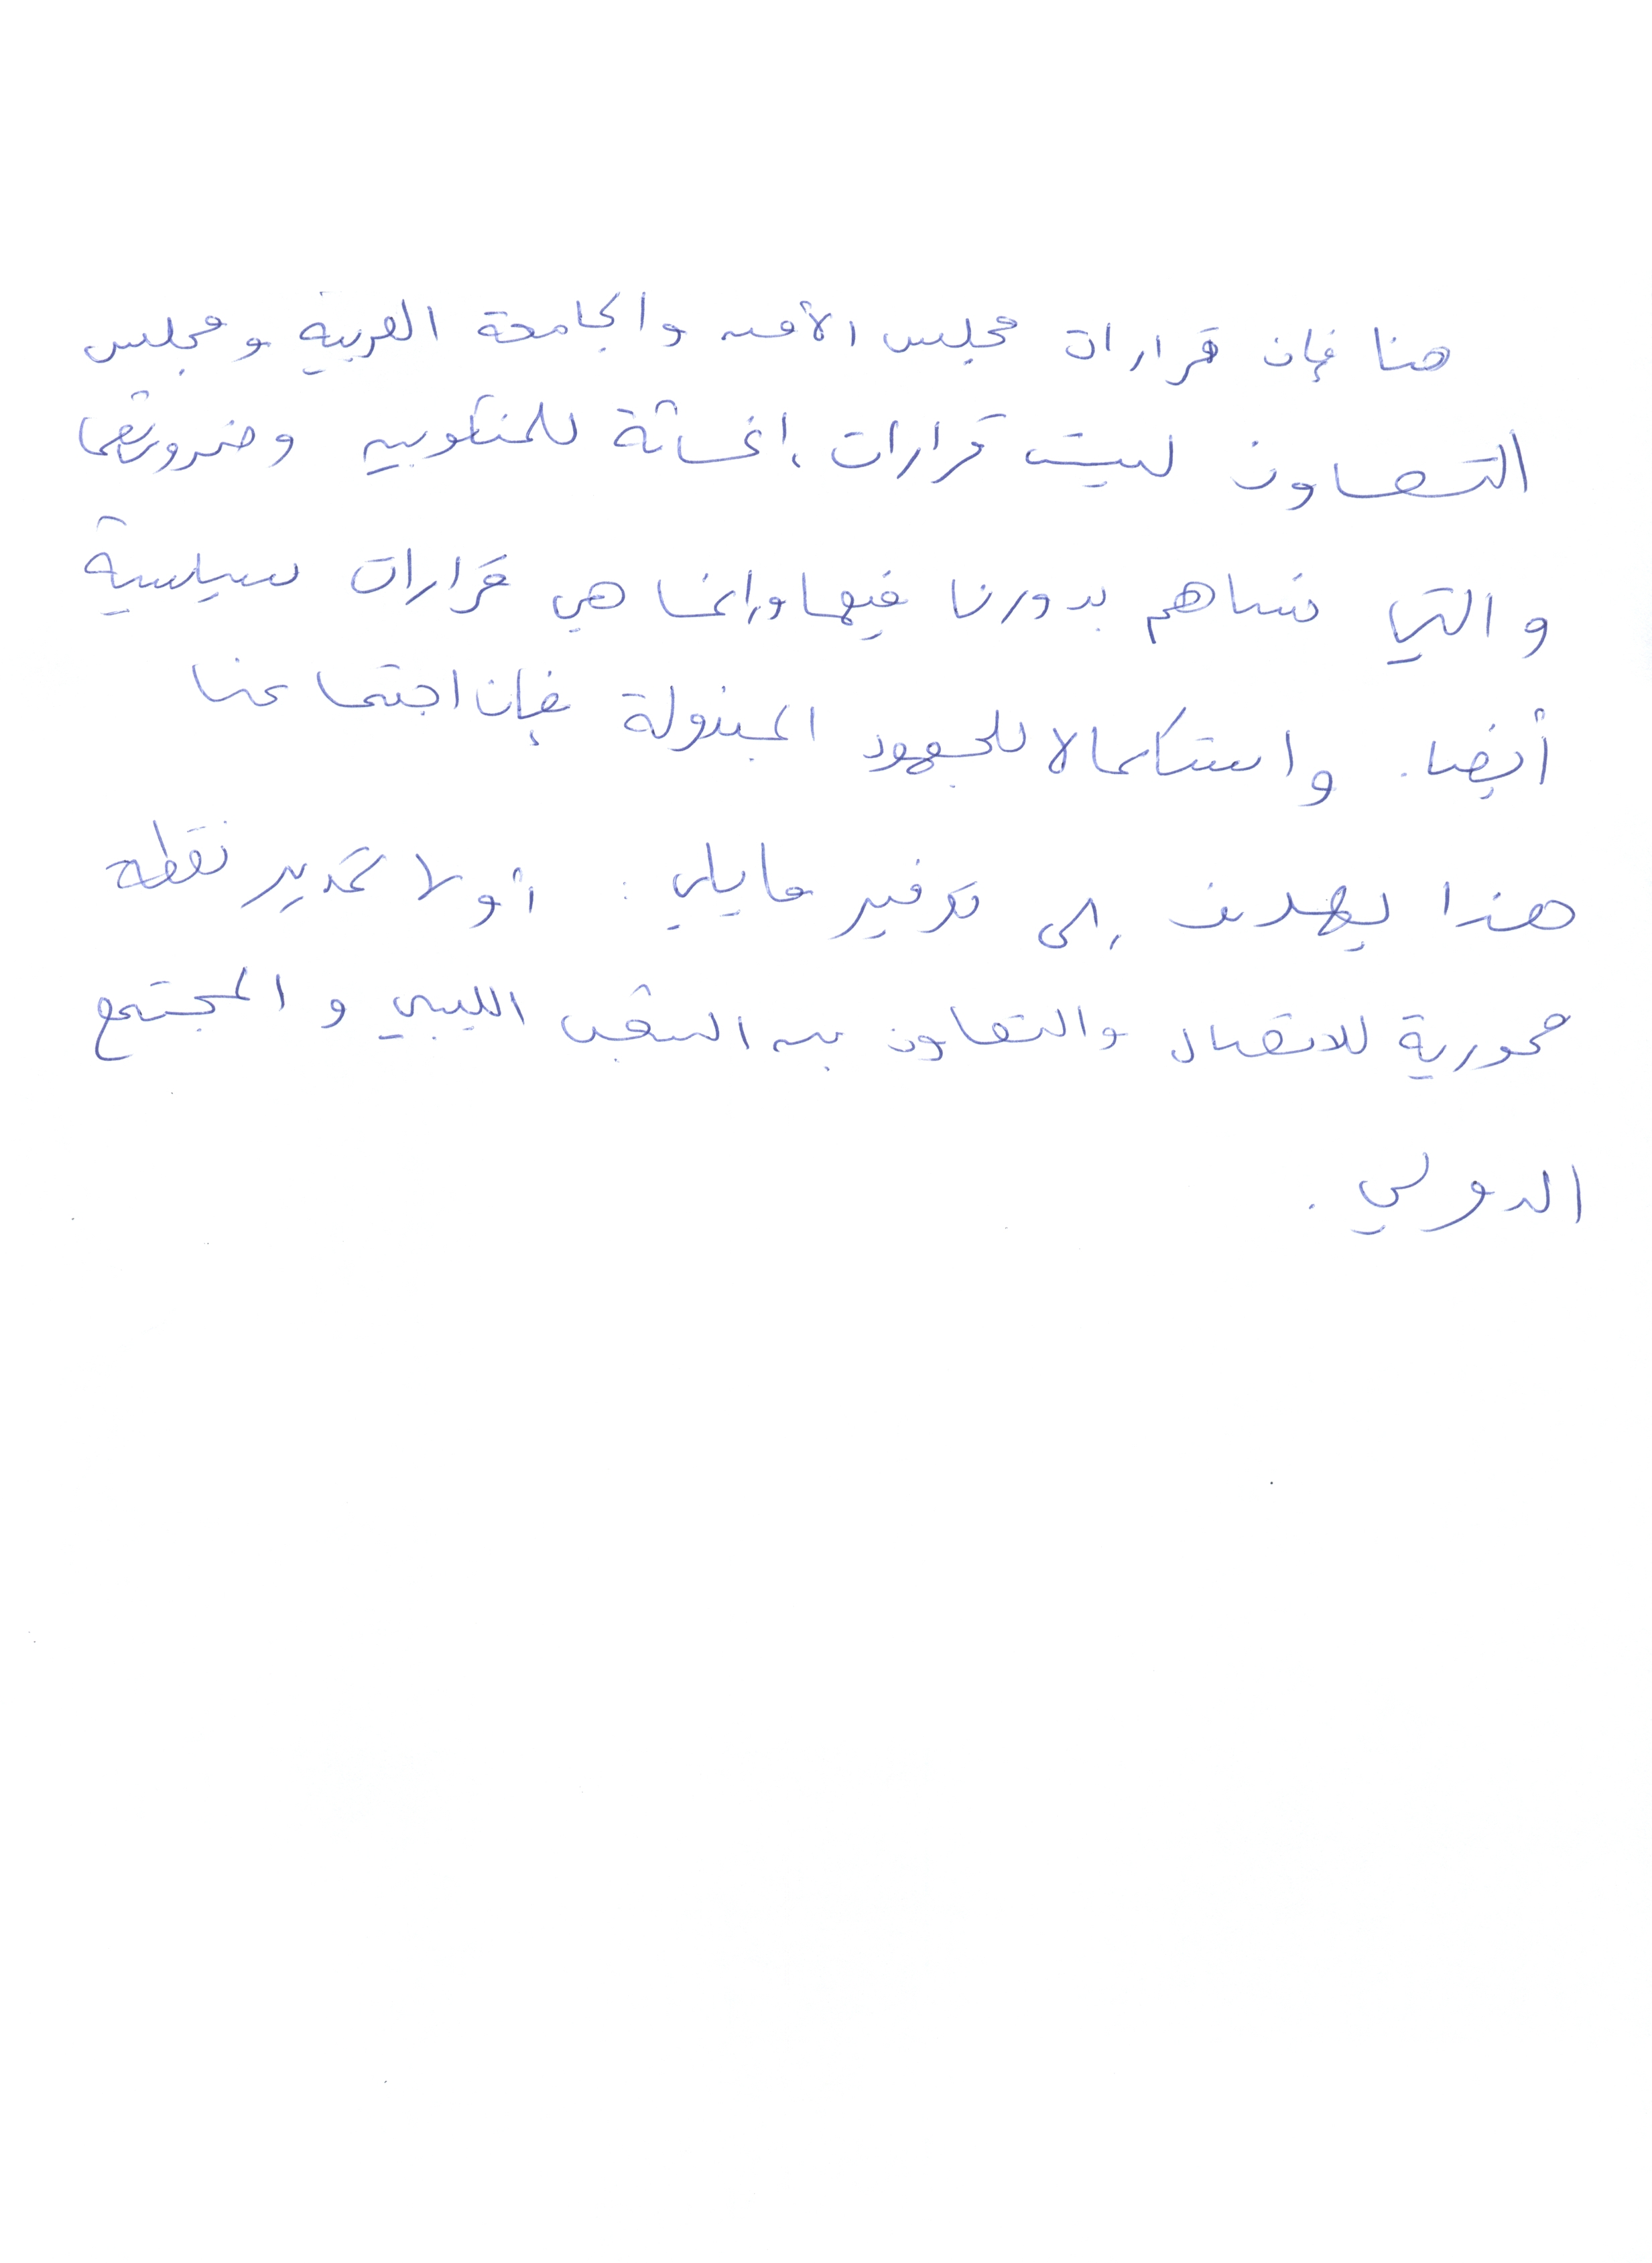 هنا فإن قرارات مجلس الأمن والجامعة العربية ومجلس
التعاون ليست قرارات إغاثة للمنكوبين وضرورتها
والتي نساهم بدورنا فيها وإنما هي قرارات سياسية
أيضا. واستكمالا للجهود المبذولة فإن اجتماعنا
هذا يهدف إلى توفير مايلي: أولا تحديد نقطة
محورية للاتصال والتعاون بين الشعب الليبي والمجتمع
الدولي.